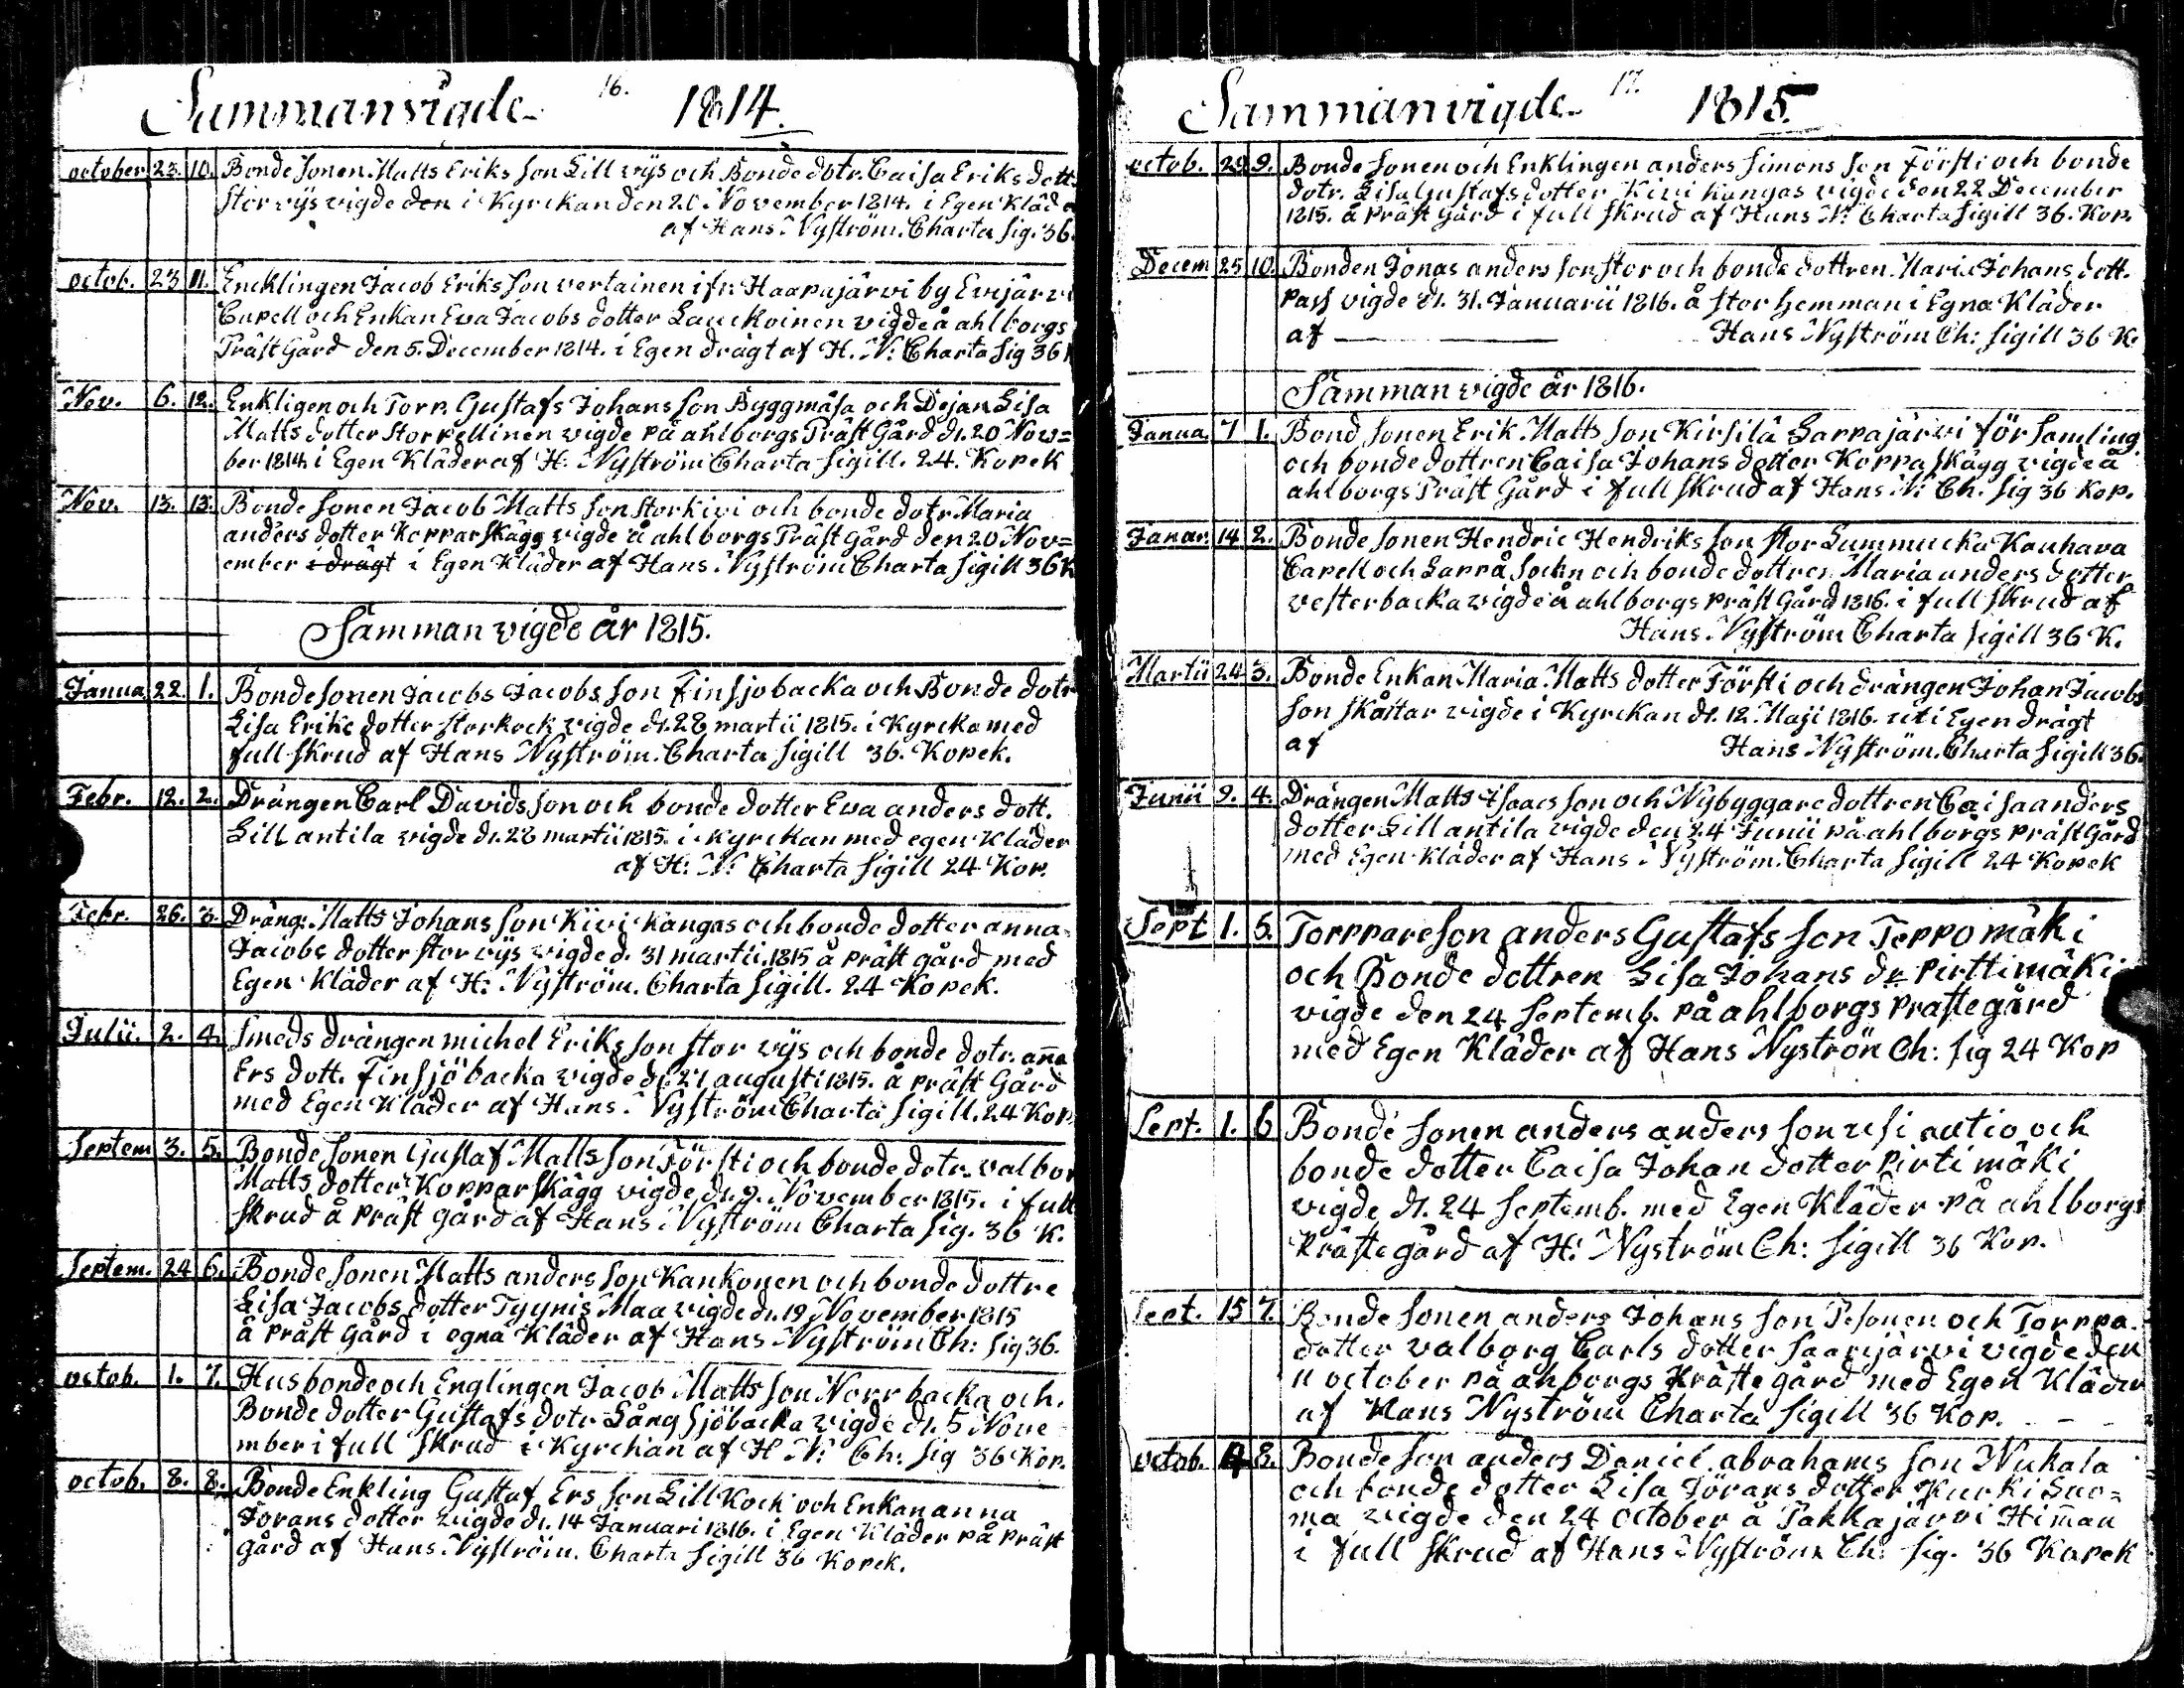 16.
Sammanvigde 1814.
october 23. 10. Bonde Sonen Matts Eriks Son Lill vÿs och Bonde dotr. Caisa Eriks dott.
Stor vÿs vigde den i Kyrckan den 20 November 1814. i Egen Kläd
af Hans Nyström. Charta Sig. 36.
octob. 23 11. Encklingen Jacob Eriks Son vertainen ifr: Haapajärvi by Evijärvi
Capell och Enkan Eva Jacobs dotter Lauckoinen vigde å ahlborgs
Präst Gård den 5. December 1814. i Egen drägt af H. N: Charta Sig 36
Nov. 6. 12. Enkligen och Torp. Gustafs Johans Son Byggmäsa och Dejan Lisa
Matts dotter Storpellinen vigde på ahlborgs Präst Gård dn. 20 Nov=
ber 1814 i Egen Kläder af H: Nyström Charta Sigill. 24. Kopek
Nov. 13. 13. Bonde Sonen Jacob Matts Son Storkivi och bonde dotr. Maria
anders dotter Kopparskägg vigde å ahlborgs Präst Gård den 20 Nov=
ember i drägt i Egen Kläder af Hans Nyström Charta Sigill 36 K
Samman vigde år 1815.
Janua 22. 1. Bonde Sonen Jacobs Jacobs Son Finsjobacka och Bonde dotr
Lisa Eriks dotter Storkock vigde dn. 28 martii 1815. i Kyrcka med
full skrud af Hans Nyström. Charta Sigill 36. Kopek.
Febr. 12. 2. Drängen Carl Davids Son och bonde dotter Eva anders dott.
Lill antila vigde dn. 28 martii 1815. i Kyrckan med egen Kläder
af H: N: Charta Sigill 24 Kop.
Febr. 26. 3. Dräng: Matts Johans Son Kivi Kangas och bonde dotter anna
Jacobs dotter Stor vÿs vigde d. 31 martii 1815 å präst gård med
Egen Kläder af H: Nyström. Charta Sigill. 24 Kopek.
Julii. 2. 4. Smeds drängen michel Eriks Son Stor vÿs och bonde dotr. aña
Ers dott. Finsjöbacka vigde dn. 27 augusti 1815. å präst Gård
med Egen Kläder af Hans Nyström Charta Sigill. 24 Kop.
Septem 3. 5. Bonde Sonen Gustaf Matts Son Försti och bonde dotr. valbor
Matts dotter Kopparskägg vigde dn. 9. November 1815. i full
Skrud å präst gård af Hans Nyström Charta Sig. 36 K.
Septem. 24 6. Bonde Sonen Matts anders Son Kankonen och bonde dottre
Lisa Jacobs dotter Tyynis Maa vigde dn. 19 November 1815
å präst gård i egna Kläder af Hans Nyström Ch: Sig 36.
octob. 1. 7. Husbonde och Englingen Jacob Matts Son Norrbacka och.
Bonde dotter Gustafs dotr. Långsjöbacka vigde dn. 5 Nove
mber i full Skrud i Kyrckan af H N: Ch: Sig 36 Kop.
octob. 8. 8. Bonde Enkling Gustaf Ers Son Lill Kock och Enkan anna
Jörans dotter vigde dn. 14 Januari 1816. i Egen Kläder på präst
gård af Hans Nyström. Charta Sigill 36 Kopek.
17.
Sammanvigde 1815.
octob. 29 9. Bonde Sonen och Enklingen anders Simons Son Försti och bonde
dotr. Lisa Gustafs dotter Kivi kangas vigde den 22 December
1815. å präst gård i full skrud af Hans N: Charta Sigill 36. Kop.
Decem 25 10. Bonden Jonas anders Son Stor och bonde dottren Maria Johans dott.
Pass vigde dn. 31. Januarii 1816. å Stor hemman i Egna Kläder
af Hans Nyström Ch: Sigill 36 K.
Samman vigde år 1816.
Janua 7 1. Bond Sonen Erik Matts Son Kirsilä Lappajärvi för samling
och bonde dottren Caisa Johans dotter Kopparskägg vigde å
ahlborgs Präst Gård i full skrud af Hans N: Ch. Sig 36 Kop.
Januar. 14 2. Bonde Sonen Hendric Hendriks Son Stor Lummucka Kauhava
Capell och Lappå Sockn och bonde dottren Maria anders dotter
vesterbacka vigde å ahlborgs präst Gård 1816. i full Skrud af
Hans Nyström Charta Sigill 36 K.
Martii 24 3. Bonde Enkan Maria Matts dotter Försti och drängen Johan Jacobs
Son Skåttar vigde i Kyrckan dn. 12. Maji 1816. uti Egen drägt
af Hans Nyström. Charta Sigill 36.
Junii 9. 4. Drängen Matts Isacs Son och Nybyggare dottren Caisa anders
dotter Lill antila vigde den 24 Junii på ahlborgs präst Gård
med Egen Kläder af Hans Nyström. Charta Sigill 24 Kopek
Sept 1. 5. Torppare Son anders Gustafs Son Teppo mäki
och Bonde dottren Lisa Johans dr Pirttimäki
vigde den 24 Septemb. på ahlborgs prästegård
med Egen Kläder af Hans Nyströn Ch: Sig 24 Kop
Sept. 1. 6 Bonde Sonen anders anders Son usi autio och
bonde dotter Caisa Johan dotter Pirti mäki
vigde dn. 24 Septemb. med Egen Kläder på ahlborgs
Prästegård af H: Nyström Ch: Sigill 36 Kop.
Sept. 15 7. Bonde Sonen anders Johans Son Pesonen och Torppa.
dotter valborg Carls dotter Saarijärvi vigde den
11 october på ahborgs Präste gård med Egen Kläder
af Hans Nyström Charta Sigill 36 Kop.
octob. 8. Bonde Son anders Daniel abrahams Son Niukala
och bonde dotter Lisa Jörans dotter Kurki Suo=
ma vigde den 24 October å Pakkajärvi Himau
i full Skrud af Hans Nyström Ch: Sig. 36 Kopek